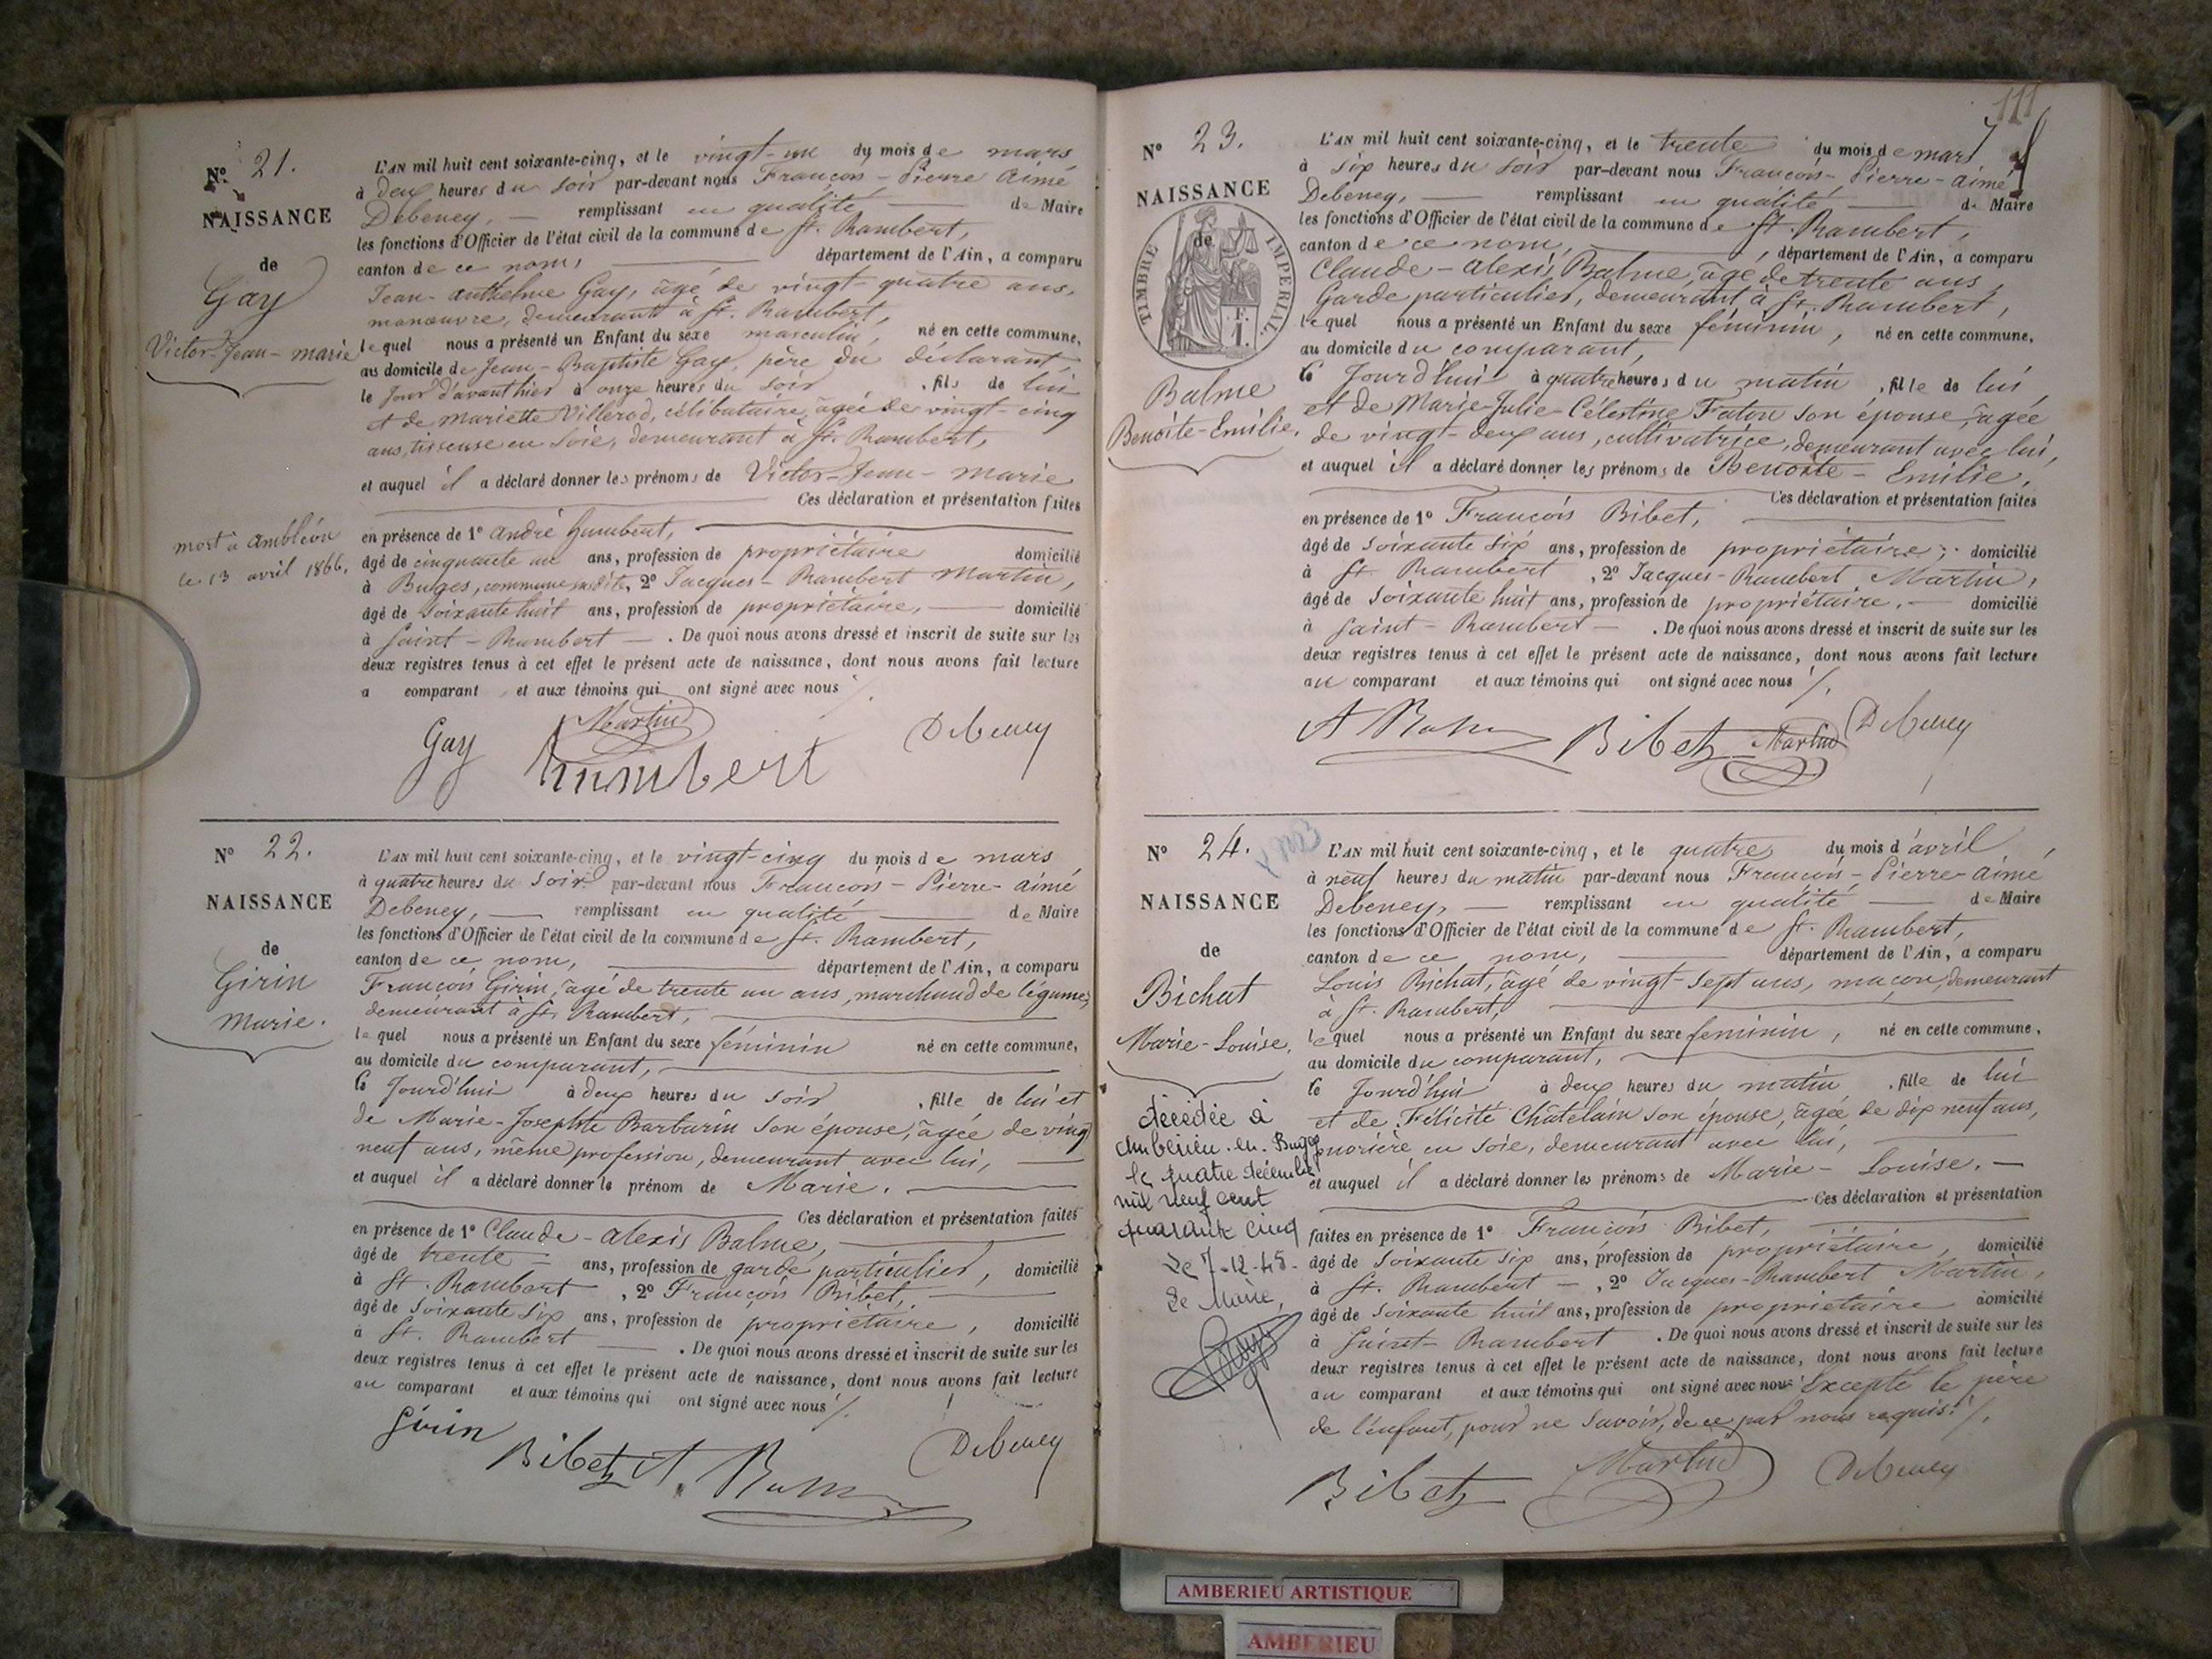 Nº 21.
NAISSANCE
de
Gay
Victor-Jean-marie
mort à Ambléon
le 13 avril 1866.
L'AN mil huit cent soixante-cinq, et le vingt-un du mois de mars
à deux heures du soir par-devant nous François-Pierre Aimé
Debeney, — remplissant en qualité — de Maire
les fonctions d'Officier de l'état civil de la commune de St. Rambert,
canton de ce nom, — département de l'Ain, a comparu
Jean-Anthelme Gay, âgé de vingt-quatre ans,
manœuvre, demeurant à St. Rambert,
lequel nous a présenté un Enfant du sexe masculin, né en cette commune,
au domicile de Jean-Baptiste Gay, père du déclarant,
le jour d'avant hier à onze heures du soir, fils de lui
et de Mariette Villerod, célibataire, âgée de vingt-cinq
ans, tisseuse en soie, demeurant à St. Rambert,
et auquel il a déclaré donner les prénoms de Victor-Jean-Marie
Ces déclaration et présentation faites
en présence de 1º André humbert, —
âgé de cinquante un ans, profession de propriétaire domicilié
à Buges, commune susdite, 2º Jacques-Rambert Martin,
âgé de soixante huit ans, profession de propriétaire, — domicilié
à Saint-Rambert — . De quoi nous avons dressé et inscrit de suite sur les
deux registres tenus à cet effet le présent acte de naissance, dont nous avons fait lecture
a comparant et aux témoins qui ont signé avec nous /.
Martin
Gay humbert Debeney
Nº 22.
NAISSANCE
de
Girin
Marie.
L'AN mil huit cent soixante-cinq, et le vingt-cinq du mois de mars
à quatre heures du soir par-devant nous François-Pierre-Aimé
Debeney, — remplissant en qualité — de Maire
les fonctions d'Officier de l'état civil de la commune de St. Rambert,
canton de ce nom, — département de l'Ain, a comparu
François Girin, âgé de trente un ans, marchand de légumes,
demeurant à St. Rambert, —
lequel nous a présenté un Enfant du sexe féminin né en cette commune,
au domicile du comparant, —
le jourd'hui à deux heures du soir, fille de lui et
de Marie-Josephte Barbarin son épouse, âgée de vingt
neuf ans, même profession, demeurant avec lui, —
et auquel il a déclaré donner le prénom de Marie. —
Ces déclaration et présentation faites
en présence de 1º Claude-Alexis Balme, —
âgé de trente — ans, profession de garde particulier, domicilié
à St. Rambert, 2º François Bibet, —
âgé de soixante six ans, profession de propriétaire, domicilié
à St. Rambert — . De quoi nous avons dressé et inscrit de suite sur les
deux registres tenus à cet effet le présent acte de naissance, dont nous avons fait lecture
au comparant et aux témoins qui ont signé avec nous /.
Girin Bibet A. Balme Debeney
111
Nº 23.
NAISSANCE
de
TIMBRE IMPÉRIAL
Balme
Benoite-Emilie.
L'AN mil huit cent soixante-cinq, et le trente du mois de mars
à six heures du soir par-devant nous François-Pierre-Aimé
Debeney, — remplissant en qualité — de Maire
les fonctions d'Officier de l'état civil de la commune de St. Rambert,
canton de ce nom, — , département de l'Ain, a comparu
Claude-Alexis Balme, âgé de trente ans,
Garde particulier, demeurant à St. Rambert,
lequel nous a présenté un Enfant du sexe féminin, né en cette commune,
au domicile du comparant,
le jourd'hui à quatre heures du matin, fille de lui
et de Marie-Julie-Célestine Fraton son épouse, âgée
de vingt-deux ans, cultivatrice, demeurant avec lui,
et auquel il a déclaré donner les prénoms de Benoite-Emilie.
Ces déclaration et présentation faites
en présence de 1º François Bibet, —
âgé de soixante six ans, profession de propriétaire, domicilié
à St. Rambert, 2º Jacques-Rambert Martin,
âgé de soixante huit ans, profession de propriétaire. — domicilié
à Saint-Rambert — . De quoi nous avons dressé et inscrit de suite sur les
deux registres tenus à cet effet le présent acte de naissance, dont nous avons fait lecture
au comparant et aux témoins qui ont signé avec nous /.
A Balme Bibet Martin Debeney
Nº 24.
NAISSANCE
de
Bichat
Marie-Louise.
décédée à
Ambérieu-en-Bugey
le quatre décembre
mil neuf cent
quarante cinq
Le 7-12-45-
Le Maire,
L'AN mil huit cent soixante-cinq, et le quatre du mois d'avril
à neuf heures du matin par-devant nous François-Pierre-Aimé
Debeney, — remplissant en qualité — de Maire
les fonctions d'Officier de l'état civil de la commune de St. Rambert,
canton de ce nom, — département de l'Ain, a comparu
Louis Bichat, âgé de vingt-sept ans, maçon, demeurant
à St. Rambert, —
lequel nous a présenté un Enfant du sexe feminin, né en cette commune,
au domicile du comparant, —
le jourd'hui à deux heures du matin, fille de lui
et de Félicité Chatelain son épouse, âgée de dix neuf ans,
en soie, demeurant avec lui, —
et auquel il a déclaré donner les prénoms de Marie-Louise. —
Ces déclaration et présentation
faites en présence de 1º François Bibet, —
âgé de soixante six ans, profession de propriétaire, domicilié
à St. Rambert — , 2º Jacques-Rambert Martin,
âgé de soixante huit ans, profession de propriétaire domicilié
à Saint-Rambert . De quoi nous avons dressé et inscrit de suite sur les
deux registres tenus à cet effet le présent acte de naissance, dont nous avons fait lecture
au comparant et aux témoins qui ont signé avec nous Excepté le père
de l'enfant, pour ne savoir, de ce par nous requis. /.
Bibet Martin Debeney
AMBERIEU ARTISTIQUE
AMBERIEU